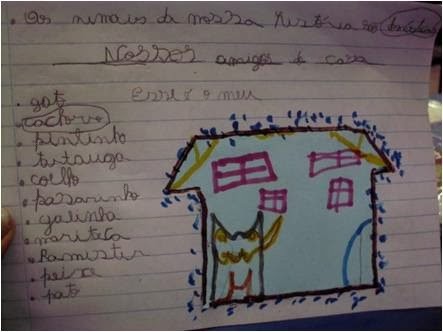 • Os nimais da nossa história são domésticos
Nossos amigos de casa
Esse é o meu
• gato
• cachorro
• pintinho
• tartauga
• coelho
• passarinho
• galinha
• mariteca
• Ramister
• peixe
• pato